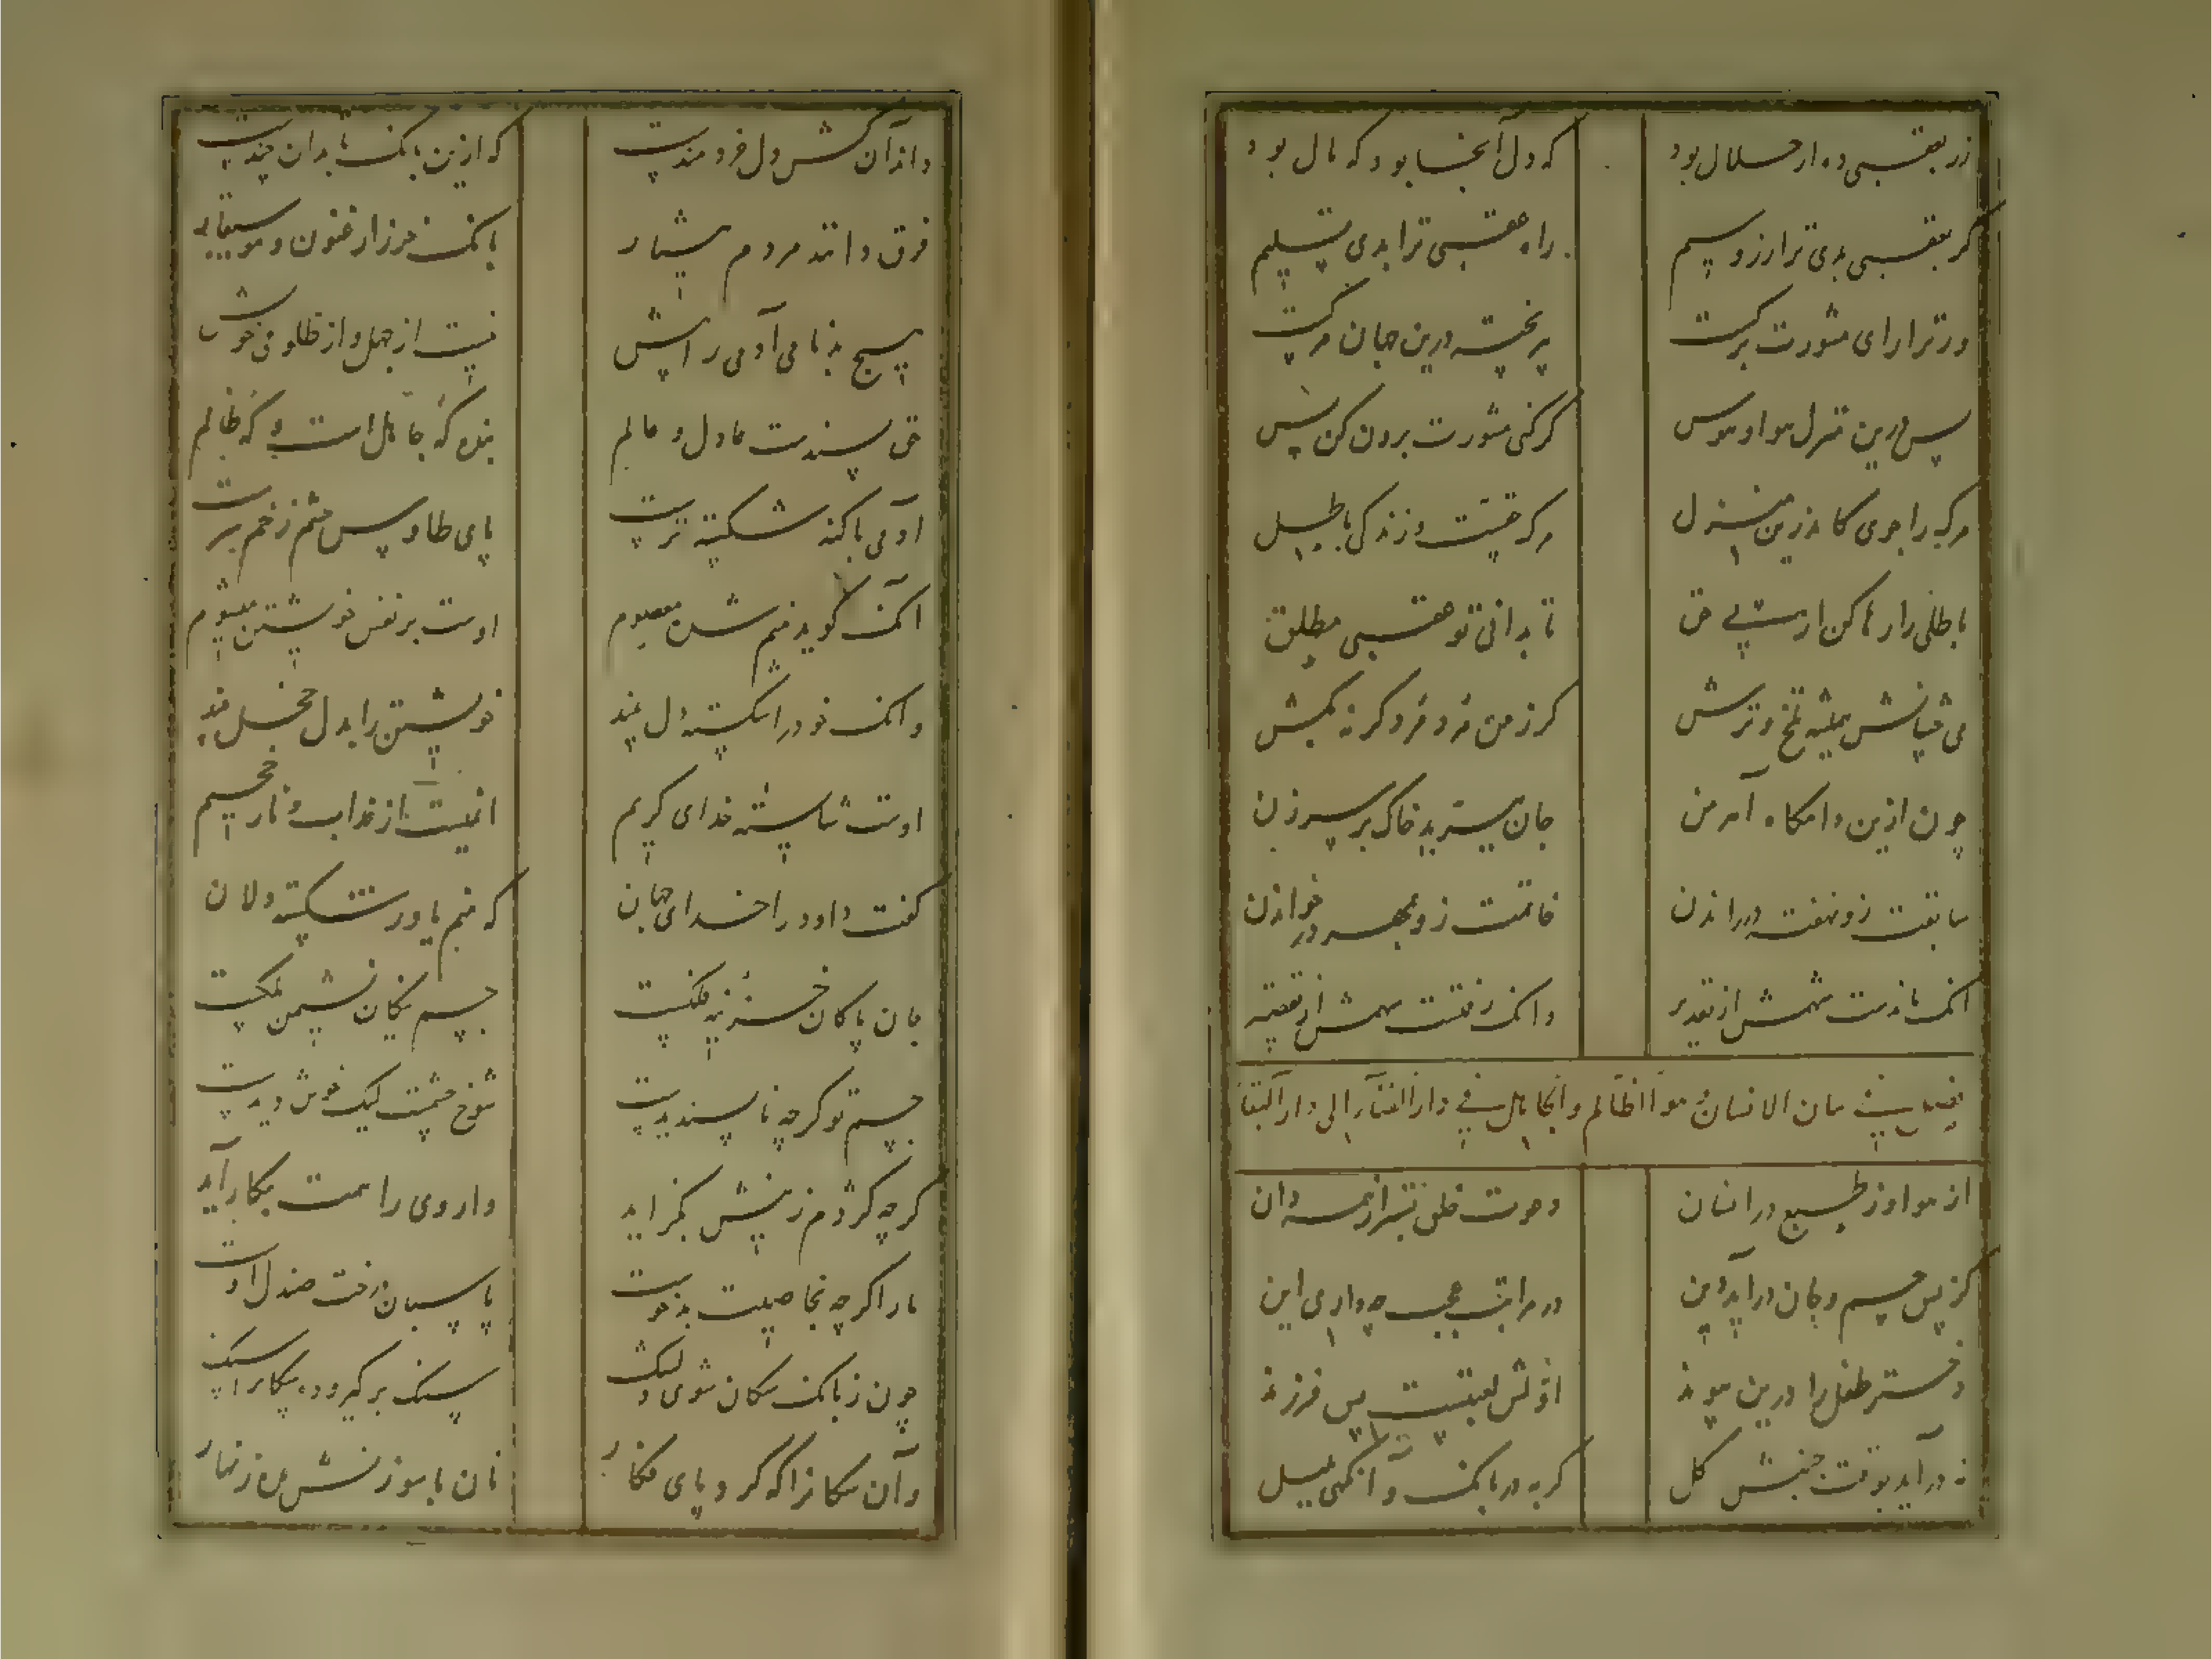 زر بعقبی ده ار حلال بود
که دل آنجا بود که مال بود
کر بعقبی بدی ترا زر و سیم
راه عقبی ترا بدی تسلیم
ور ترا رای مشورت بر کیست
پس درین منزل هوا و هوس
کر کنی مشورت برون کن پس
مرک را جوی کاندرین منزل
مرک حقست و زندکی باطل
باطلی را رها کن ار مست پی حق
تا بدانی تو عقبی مطلق
می چشانش همیشه تلخ و ترش
چون ازین دامکاه آهرمن
جان پرید خاک بر سر زن
سابقت زو نهفته در راندن
خاتمت زو بهر در خواندن
آنک ماندست سهمش از تقدیر
وانک رفتست سهمش از تقصیر
بیان الانسان هو الظالم والجاهل فی دار الفنآء الی دار البقآء
از هوا وز طبع در انسان
کز پس جسم و جان در آید دین
در مراتب عجب چه داری این
دختر طفل را درین پیوند
اوّلش لعبتیست پس فرزند
نه در آید بوقت جنبش کل
کربه در بانک و آنکهی بلبل
داند آن کش دل خردمندست
که ازین بانک تا بدان چندست
فرق داند مردم بیشیار
بانک خر ز ارغنون و موسیقار
هیچ بدنامی آدمی را بیش
نیست از جهل و از ظلومی خویش
حق پسندست عادل و عالم
بنده که جاهل است و که ظالم
آدمی با کنه شکسته ترست
پای طاوس چشم زخم پرست
آنک کوید منم شدن معصوم
اوست بر نفس خویشتن میشوم
وانک خود را شکسته دل بیند
خویشتن را بدل خجل بیند
اوست شایسته خدای کریم
ایمنست از عذاب و نار جحیم
کفت داود را خدای جهان
که منم یاور شکسته دلان
جان پاکان خزینه فلکست
جسم نیکان نشیمن ملکست
جسم تو کرچه ناپسندیدست
شوخ چشمست لیک خوش دیدست
کرچه کژدم ز نیش بکزاید
داروی را همت بکار آید
مار اکرچه بخاصیت بدخوست
پاسبان درخت صندل اوست
چون ز بانک سکان شوی دلتنک
سنک بر کیر و ده بیکار اسنک
وان سکانرا که کرد پای فکار
نان با سوزنش مده زنهار